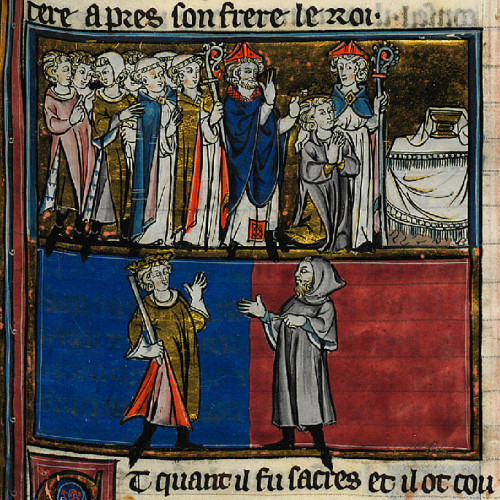 cere apres son frere le roi·
T quant il fu sacres et il ot cou